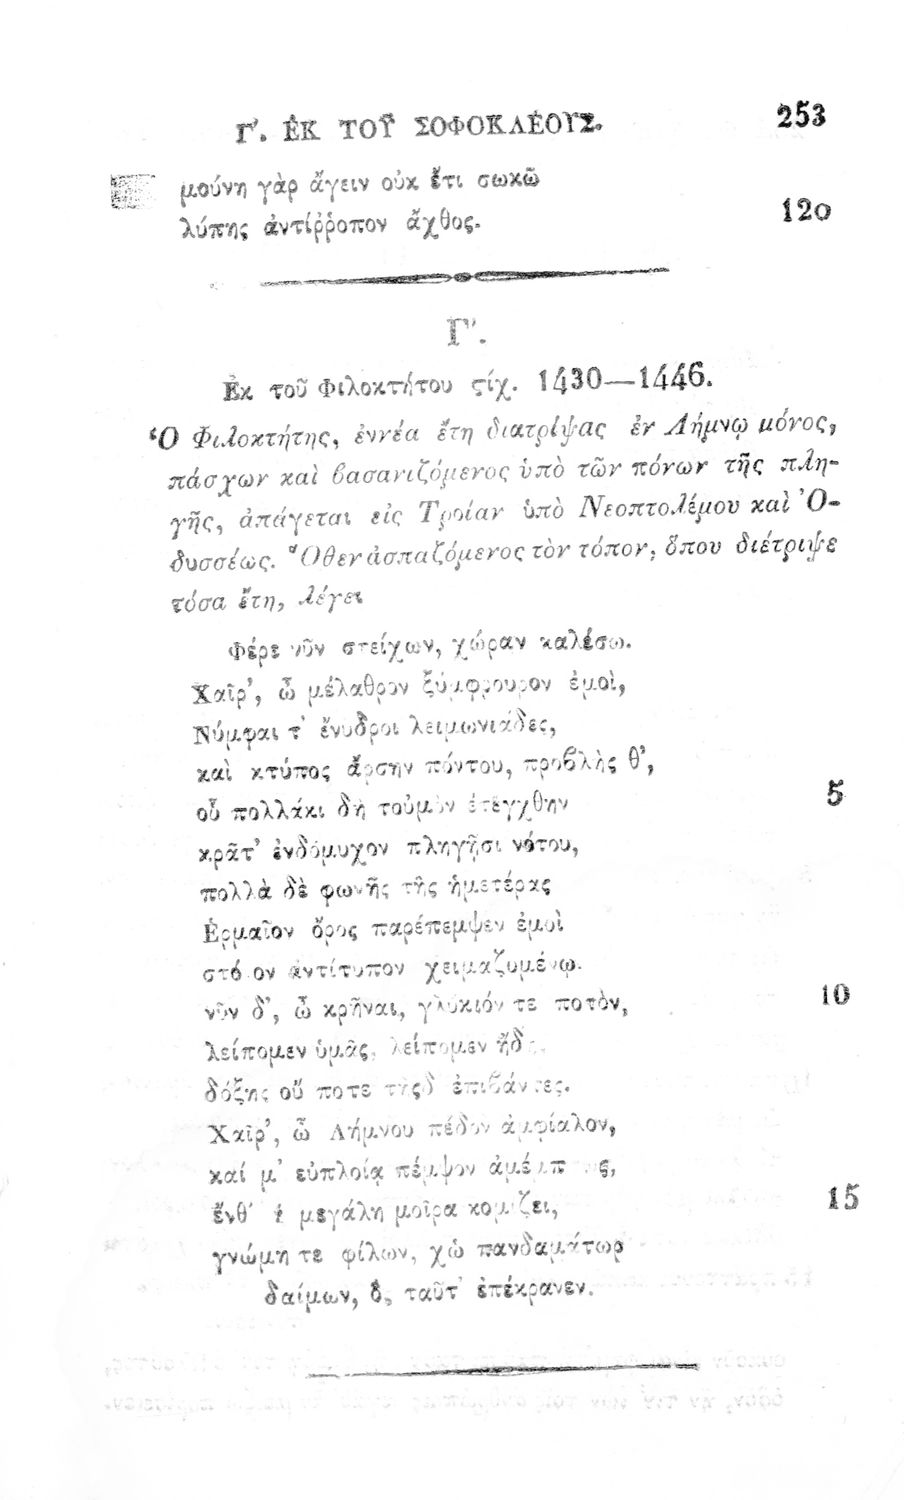 Γ'. ἘΚ ΤΟΥ͂ ΣΟΦΟΚΛΈΟΥΣ. 253
μούνη γὰρ ἄγειν οὐκ ἔτι σωκῶ
λύπης ἀντίῤῥοπον ἄχθος. 120
Γ'.
Ἐκ τοῦ Φιλοκτήτου ϛίχ. 1430—1446.
Ὁ Φιλοκτήτης, ἐννέα ἔτη διατρίψας ἐν Λήμνῳ μόνος,
πάσχων καὶ βασανιζόμενος ὑπὸ τῶν πόνων τῆς πλη-
γῆς, ἀπάγεται εἰς Τροίαν ὑπὸ Νεοπτολέμου καὶ Ὀ-
δυσσέως. Ὅθεν ἀσπαζόμενος τὸν τόπον, ὅπου διέτριψε
τόσα ἔτη, λέγει
Φέρε νῦν στείχων, χώραν καλέσω.
Χαῖρ', ὦ μέλαθρον ξύμφρουρον ἐμοὶ,
Νύμφαι τ' ἔνυδροι λειμωνιάδες,
καὶ κτύπος ἄρσην πόντου, προβλὴς θ',
οὗ πολλάκι δὴ τοὐμὸν ἐτέγχθην 5
κρᾶτ' ἐνδόμυχον πληγῇσι νότου,
πολλὰ δὲ φωνῆς τῆς ἡμετέρας
Ἑρμαῖον ὄρος παρέπεμψεν ἐμοὶ
στόνον ἀντίτυπον χειμαζομένῳ.
νῦν δ', ὦ κρῆναι, γλύκιόν τε ποτὸν, 10
λείπομεν ὑμᾶς, λείπομεν ἤδη,
δόξης οὔ ποτε τῆςδ' ἐπιβάντες.
Χαῖρ', ὦ Λήμνου πέδον ἀμφίαλον,
καί μ' εὐπλοίᾳ πέμψον ἀμέμπτως,
ἔνθ' ἡ μεγάλη μοῖρα κομίζει, 15
γνώμη τε φίλων, χὠ πανδαμάτωρ
δαίμων, ὃς ταῦτ' ἐπέκρανεν.